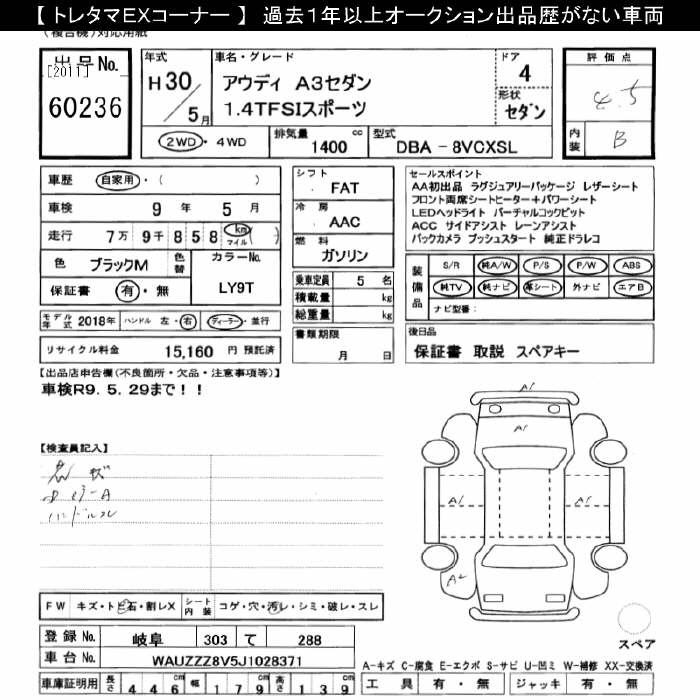 【 トレタマEXコーナー 】 過去１年以上オークション出品歴がない車両
(複合機)対応用紙
出品No.
[2011]
60236
年式
H30
5月
車名・グレード
アウディ A3セダン
1.4TFSIスポーツ
ドア
4
形状
セダン
評価点
4.5
内装
B
2WD・4WD
排気量 1400 cc
型式 DBA - 8VCXSL
車歴 自家用・( )
車検 9年 5月
走行 7万9千858 km マイル ( )
色 ブラックM
色替
カラーNo.
LY9T
保証書 有・無
モデル年式 2018年
ハンドル 左・右
ディーラー・並行
リサイクル料金 15,160 円 預託済
シフト
FAT
冷房
AAC
燃料
ガソリン
乗車定員 5 名
積載量 kg
総重量 kg
書類期限
月 日
セールスポイント
AA初出品 ラグジュアリーパッケージ レザーシート
フロント両席シートヒーター＋パワーシート
LEDヘッドライト バーチャルコックピット
ACC サイドアシスト レーンアシスト
バックカメラ プッシュスタート 純正ドラレコ
装備品
S/R 純A/W P/S P/W ABS
純TV 純ナビ 革シート 外ナビ エアB
ナビ型番：
後日品
保証書 取説 スペアキー
【出品店申告欄(不良箇所・欠品・注意事項等)】
車検R9．5．29まで！！
【検査員記入】
ハンドルスレ
A1
A1
A1
A1
A2
スペア
FW キズ・トビ石・割レX
シート内装 コゲ・穴・汚レ・シミ・破レ・スレ
登録No. 岐阜 303 て 288
車台No. WAUZZZ8V5J1028371
車庫証明用 長さ 446cm 幅 179cm 高さ 139cm
A-キズ C-腐食 E-エクボ S-サビ U-凹ミ W-補修 XX-交換済
工具 有・無 ジャッキ 有・無